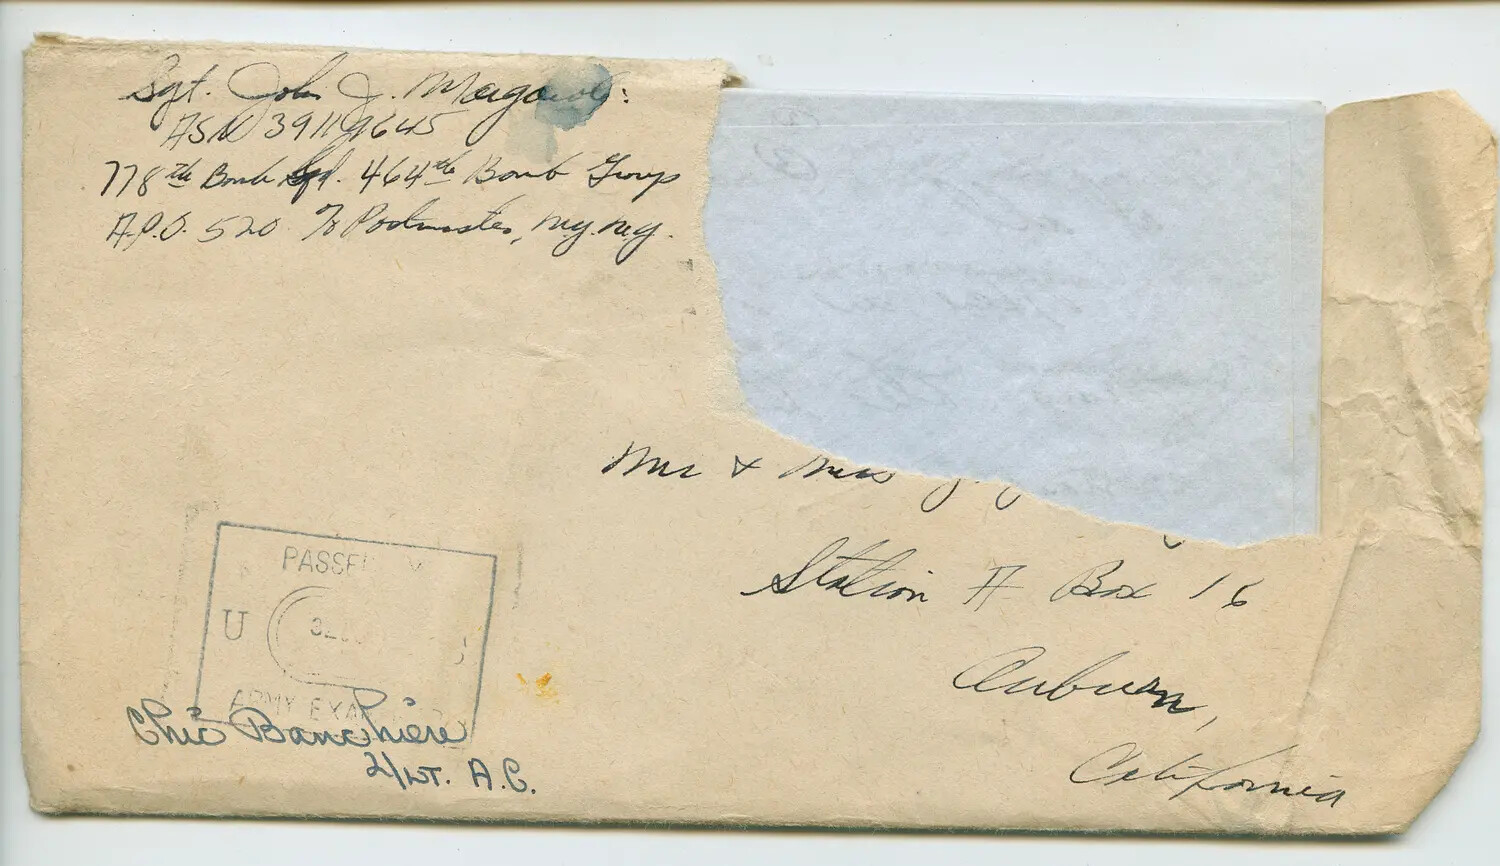 Sgt. John J.
ASN 39119645
778th Bomb Sqd. 464th Bomb Group
A.P.O. 520 % Postmaster, N.Y. N.Y.
Mr & Mrs J.
Station A Box 16
Auburn,
California
PASSED
U
ARMY EXA
Chic Banchiere
2/LT. A.C.